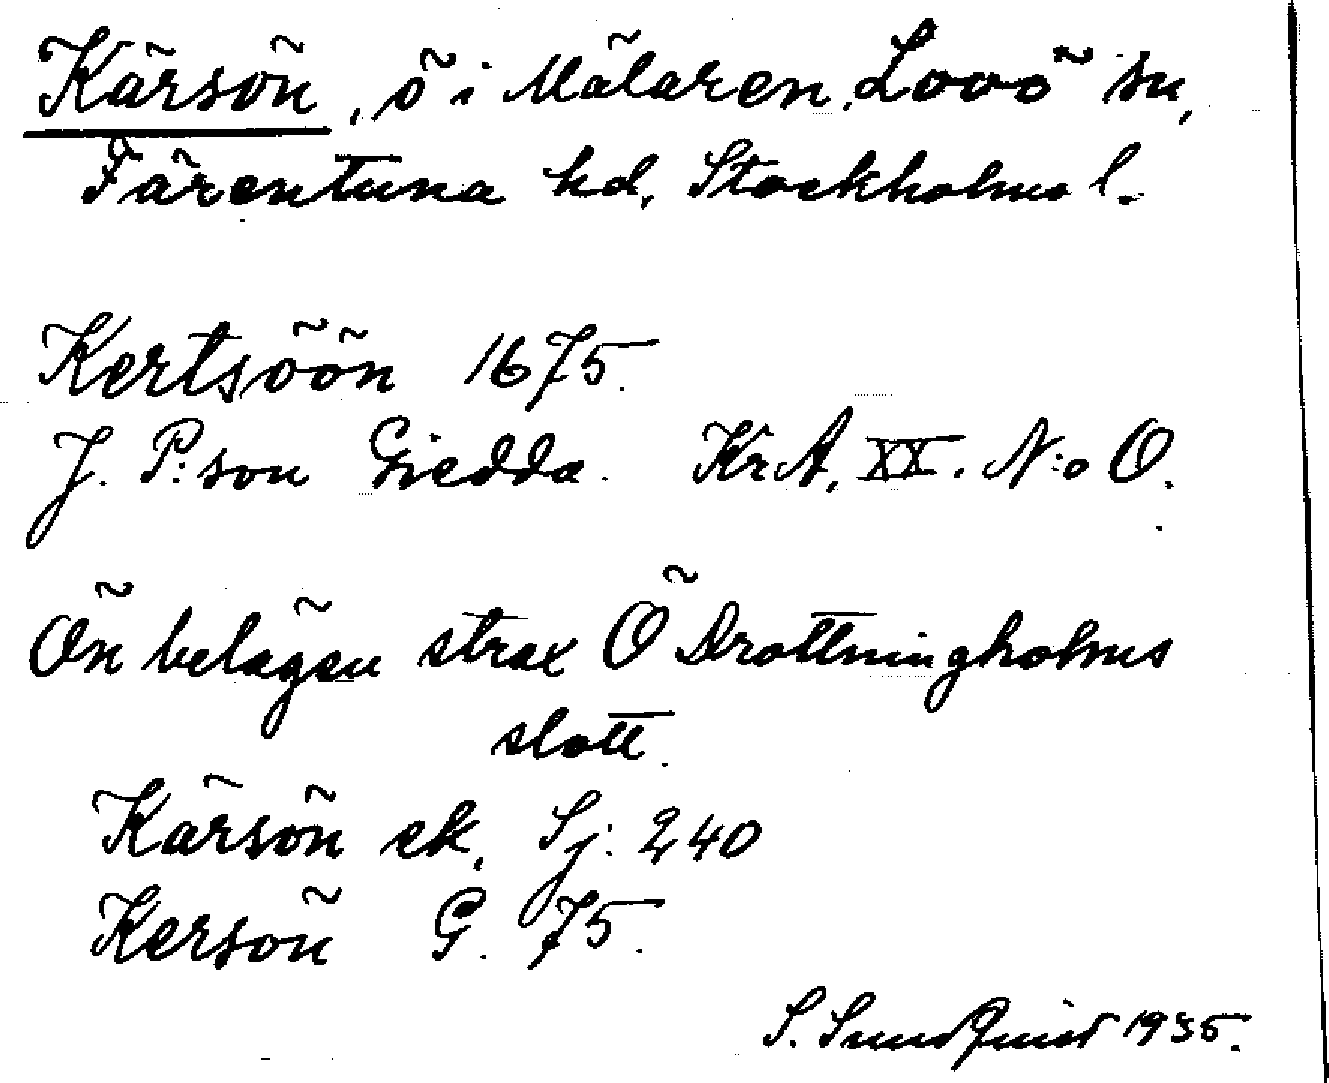 Kärsön, ö i Mälaren, Lovö sn,
Färentuna hd, Stockholms l.
Kertsöön 1675.
J. P:son Giedda. KrA, XX. N:o O.
Ön belägen strax Ö Drottningholms
slott.
Kärsön ek. Sj: 240
Kersön G. 75.
S. Sundquist 1935.